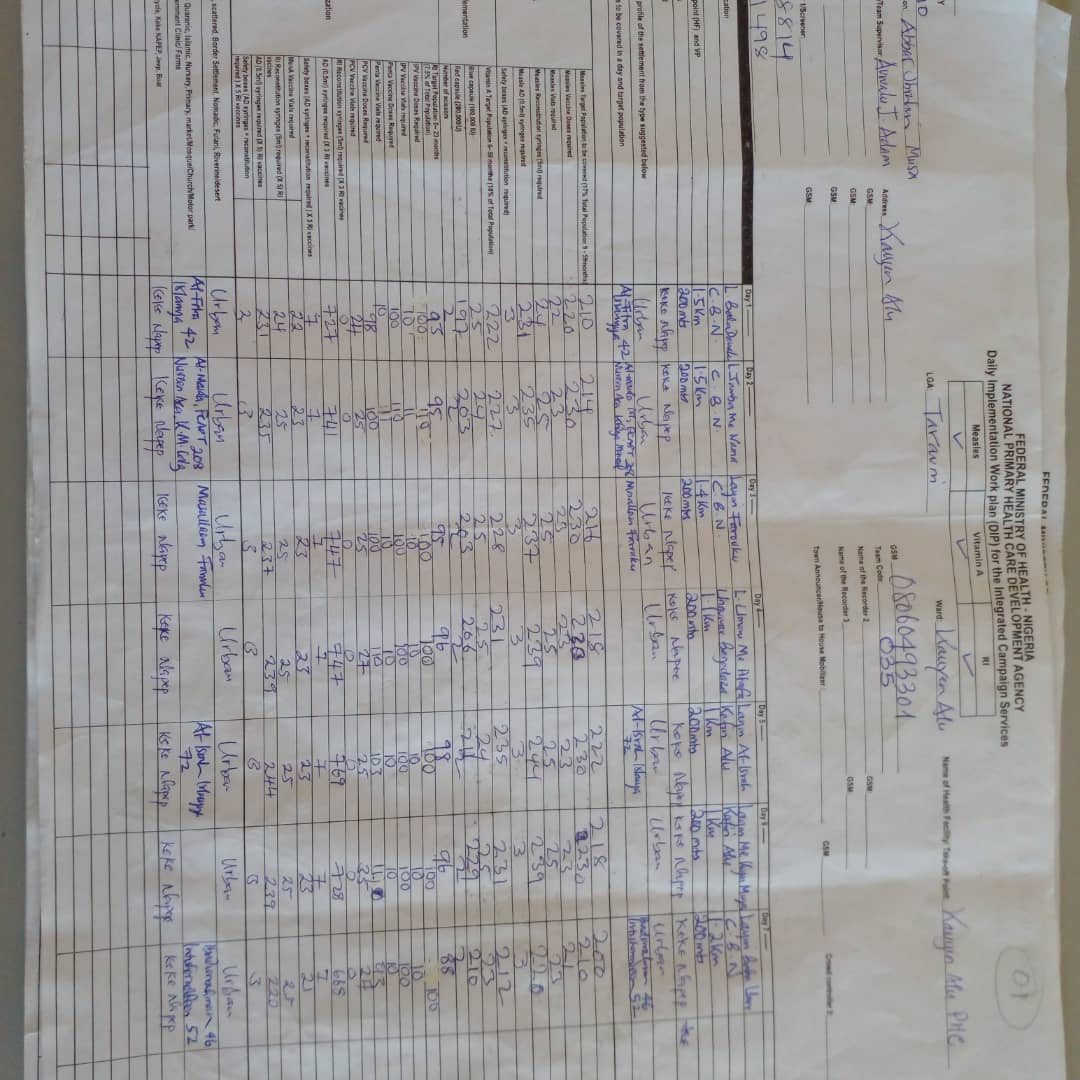 FEDERAL MINISTRY OF HEALTH - NIGERIA
NATIONAL PRIMARY HEALTH CARE DEVELOPMENT AGENCY
Daily Implementation Work plan (DIP) for the Integrated Campaign Services
01
Measles Vitamin A RI
✓ ✓ ✓
LGA: Tarauni Ward: Kauyen Alu Name of Health Facility/Take-off Point: Kauyen Alu PHC
Abbas Ibrahim Musa
/Team Supervisor: Auwalu I. Adam Address Kauyen Alu GSM 08060493301
GSM: Team Code: 035
GSM: Name of the Recorder 2 GSM:
GSM: Name of the Recorder 3 GSM:
GSM: Town Announcer/House to House Mobilizer: GSM Crowd controller 2:
1/Screener:
8814
1498
Day 1 Day 2 Day 3 Day 4 Day 5 Day 6 Day 7
C.B.N. C.B.N. C.B.N. Kofin Alu Kofin Alu C.B.N
point (HF) and VP 1.5Km 1.5Km 1.4Km 1.1Km 1Km 1Km 1.2Km
200mts 200mts 200mts 200mts 200mts 200mts 200mts
Keke Napep Keke Napep Keke Napep Keke Napee Keke Napep Keke Napep Keke Napep
profile of the settlement from the type suggested below Urban Urban Urban Urban Urban Urban Urban
s to be covered in a day and target population
Measles Target Population to be covered (17% Total Population 9 - 59months) 210 214 216 218 222 218 200
Measles Vaccine Doses required 220 230 230 230 230 230 210
Measles Vials required 22 23 23 23 23 23 21
Measles Reconstitution syringes (5ml) required 24 25 25 25 25 25 23
Measle AD (0.5ml) syringes required 231 235 237 239 244 239 220
Safety boxes (AD syringes + reconstitution required) 3 3 3 3 3 3 3
Vitamin A Target Population 6-59 months (18% of Total Population) 222 227 228 231 235 231 212
Blue capsule (100,000 IU) 25 24 25 25 24 25 23
Red capsule (200,000IU) 197 203 203 206 229 210
Number of scissors 2 2 2 2 2 2 2
RI Target Population 0- 23 months 93 95 95 96 98 96 88
(7.5% of Total Population)
IPV Vaccine Doses Required 100 110 100 100 100 100 100
IPV Vaccine Vials required 10 11 10 10 10 10 10
Penta Vaccine Doses Required 100 110 100 100 100 100 100
Penta Vaccine Vials required 10 11 10 10 10 10 10
PCV Vaccine Doses Required 98 100 100 110 103 93
PCV Vaccine Vials required 24 25 25 27 25 35 24
RI Reconstitution syringes (5ml) required (X 3 RI vaccines 0 0 0 0 0 0 0
AD (0.5ml) syringes required (X 3 RI vaccines 727 741 747 747 769 728 668
Safety boxes (AD syringes + reconstitution required ) X 3 RI vaccines 7 7 7 7 7 7 7
MenA Vaccine Vials required 22 23 23 23 23 23 21
RI Reconstitution syringes (5ml) required (X 5) RI vaccines 24 25 25 25 25 25 25
AD (0.5ml) syringes required (X 5) RI vaccines 231 235 237 239 244 239 220
Safety boxes (AD syringes + reconstitution required ) X 5 RI vaccines 3 3 3 3 3 3 3
, scattered, Border Settlement, Nomadic, Fulani, Riverine/desert Urban Urban Urban Urban Urban Urban Urban
Quaranic, Islamic, Nursery, Primary, market/Mosque/Church/Motor park/
ernment Clinic/ Farms 42 208 72 46 52
cycle, Keke NAPEP, Jeep, Boat Keke Napep Keke Napep Keke Napep Keke Napep Keke Napep Keke Napep Keke Napep